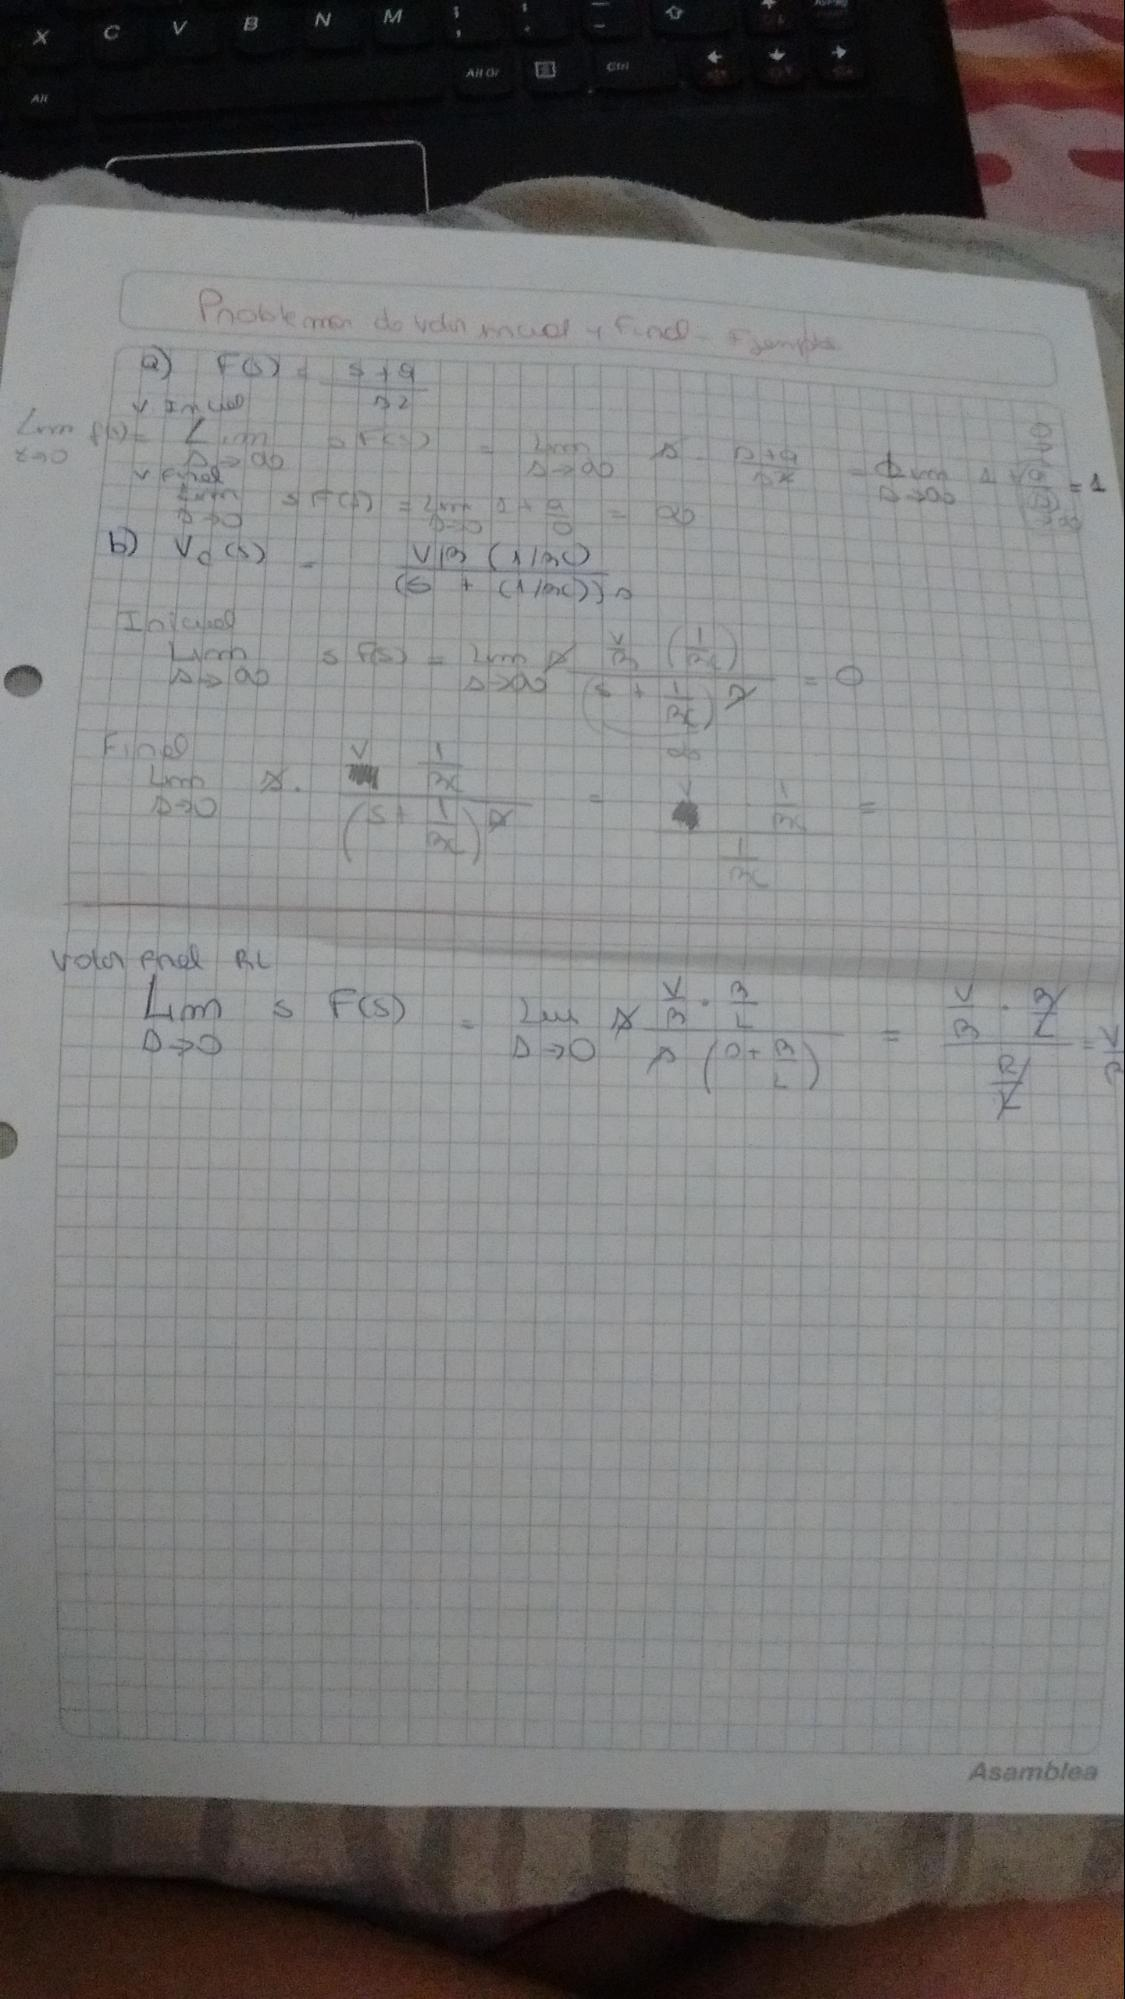 X C V B N M
Alt Alt Gr Ctrl
Problemas de valor inicial y Final - Ejemplos
a) F(s) = s+a / s2
v Inicial
Lim f(t) = Lim s F(s) = Lim s · s+a / s2 = Lim 1 + a/s = 1
t→0 s→∞ s→∞ s→∞
v Final
Lim s F(s) = Lim 1 + a/0 = ∞
s→0 s→0
b) Vc(s) = V/R (1/RC) / (s + (1/RC)) s
Inicial
Lim s F(s) = Lim s V/R (1/RC) / (s + 1/RC) s = 0
s→∞ s→∞
∞
Final
Lim s · V 1/RC / (s + 1/RC) s = V 1/RC / 1/RC =
s→0
Valor final RL
Lim s F(s) = Lim s V/R · R/L / s (0 + R/L) = V/R · R/L / R/L = V/R
s→0 s→0
Asamblea